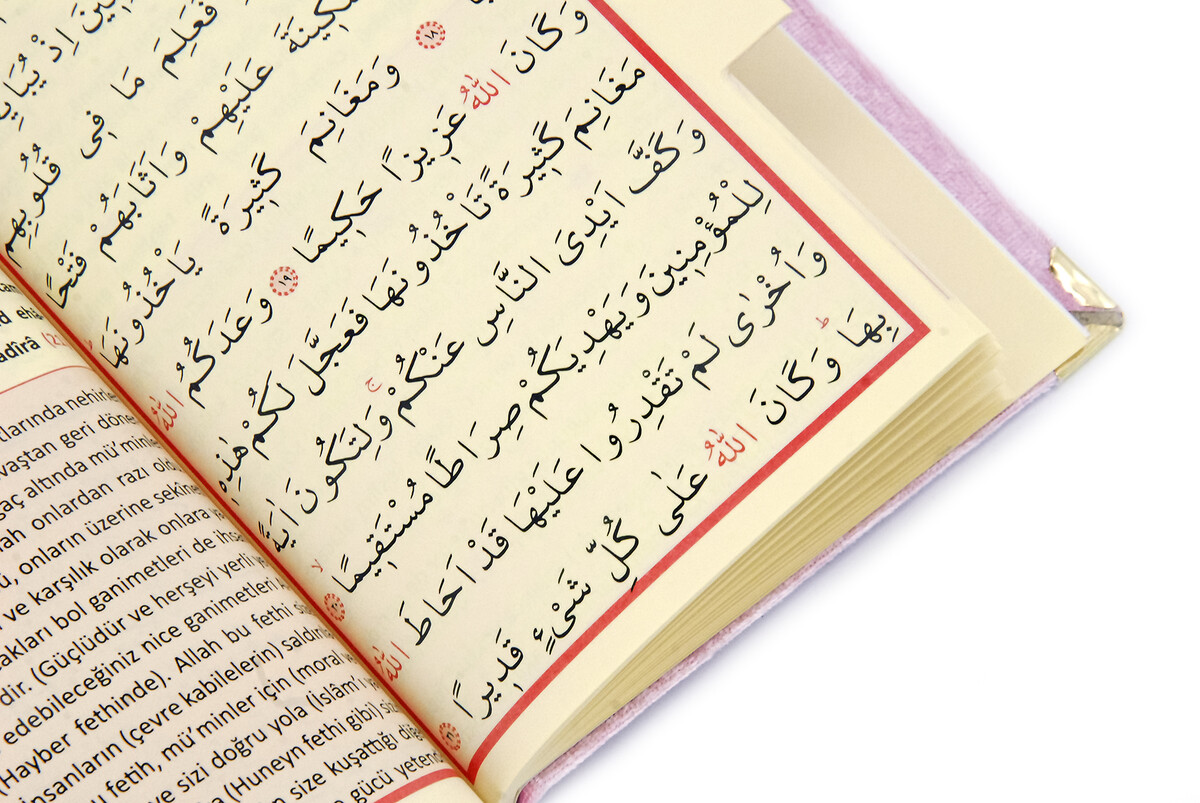 اِذْ
فَعَلِمَ مَا فِى قُلُوبِهِمْ
عَلَيْهِمْ وَاَثَابَهُمْ فَتْحًا
١٨ وَمَغَانِمَ كَثِيرَةً يَاْخُذُونَهَا
وَكَانَ اللّٰهُ عَزِيزًا حَكِيمًا ١٩ وَعَدَكُمُ اللّٰهُ
مَغَانِمَ كَثِيرَةً تَاْخُذُونَهَا فَعَجَّلَ لَكُمْ هٰذِهِ
وَكَفَّ اَيْدِىَ النَّاسِ عَنْكُمْ ج وَلِتَكُونَ اٰيَةً
لِلْمُؤْمِنِينَ وَيَهْدِيَكُمْ صِرَاطًا مُسْتَقِيمًا لا ٢٠
وَاُخْرٰى لَمْ تَقْدِرُوا عَلَيْهَا قَدْ اَحَاطَ اللّٰهُ
بِهَا ط وَكَانَ اللّٰهُ عَلٰى كُلِّ شَىْءٍ قَدِيرًا ٢١
adîrâ
nehirle
vaştan geri döne
altında mü'minle
onlardan razı oldu
onların üzerine sekîne
ve karşılık olarak onlara
bol ganimetleri de ihsa
(Güçlüdür ve herşeyi yerli
edebileceğiniz nice ganimetleri
(Hayber fethinde). Allah bu fethi
insanların (çevre kabilelerin) saldırı
fetih, mü'minler için (moral
ve sizi doğru yola (İslâm'
(Huneyn fethi gibi)
size kuşattığı
gücü yetend